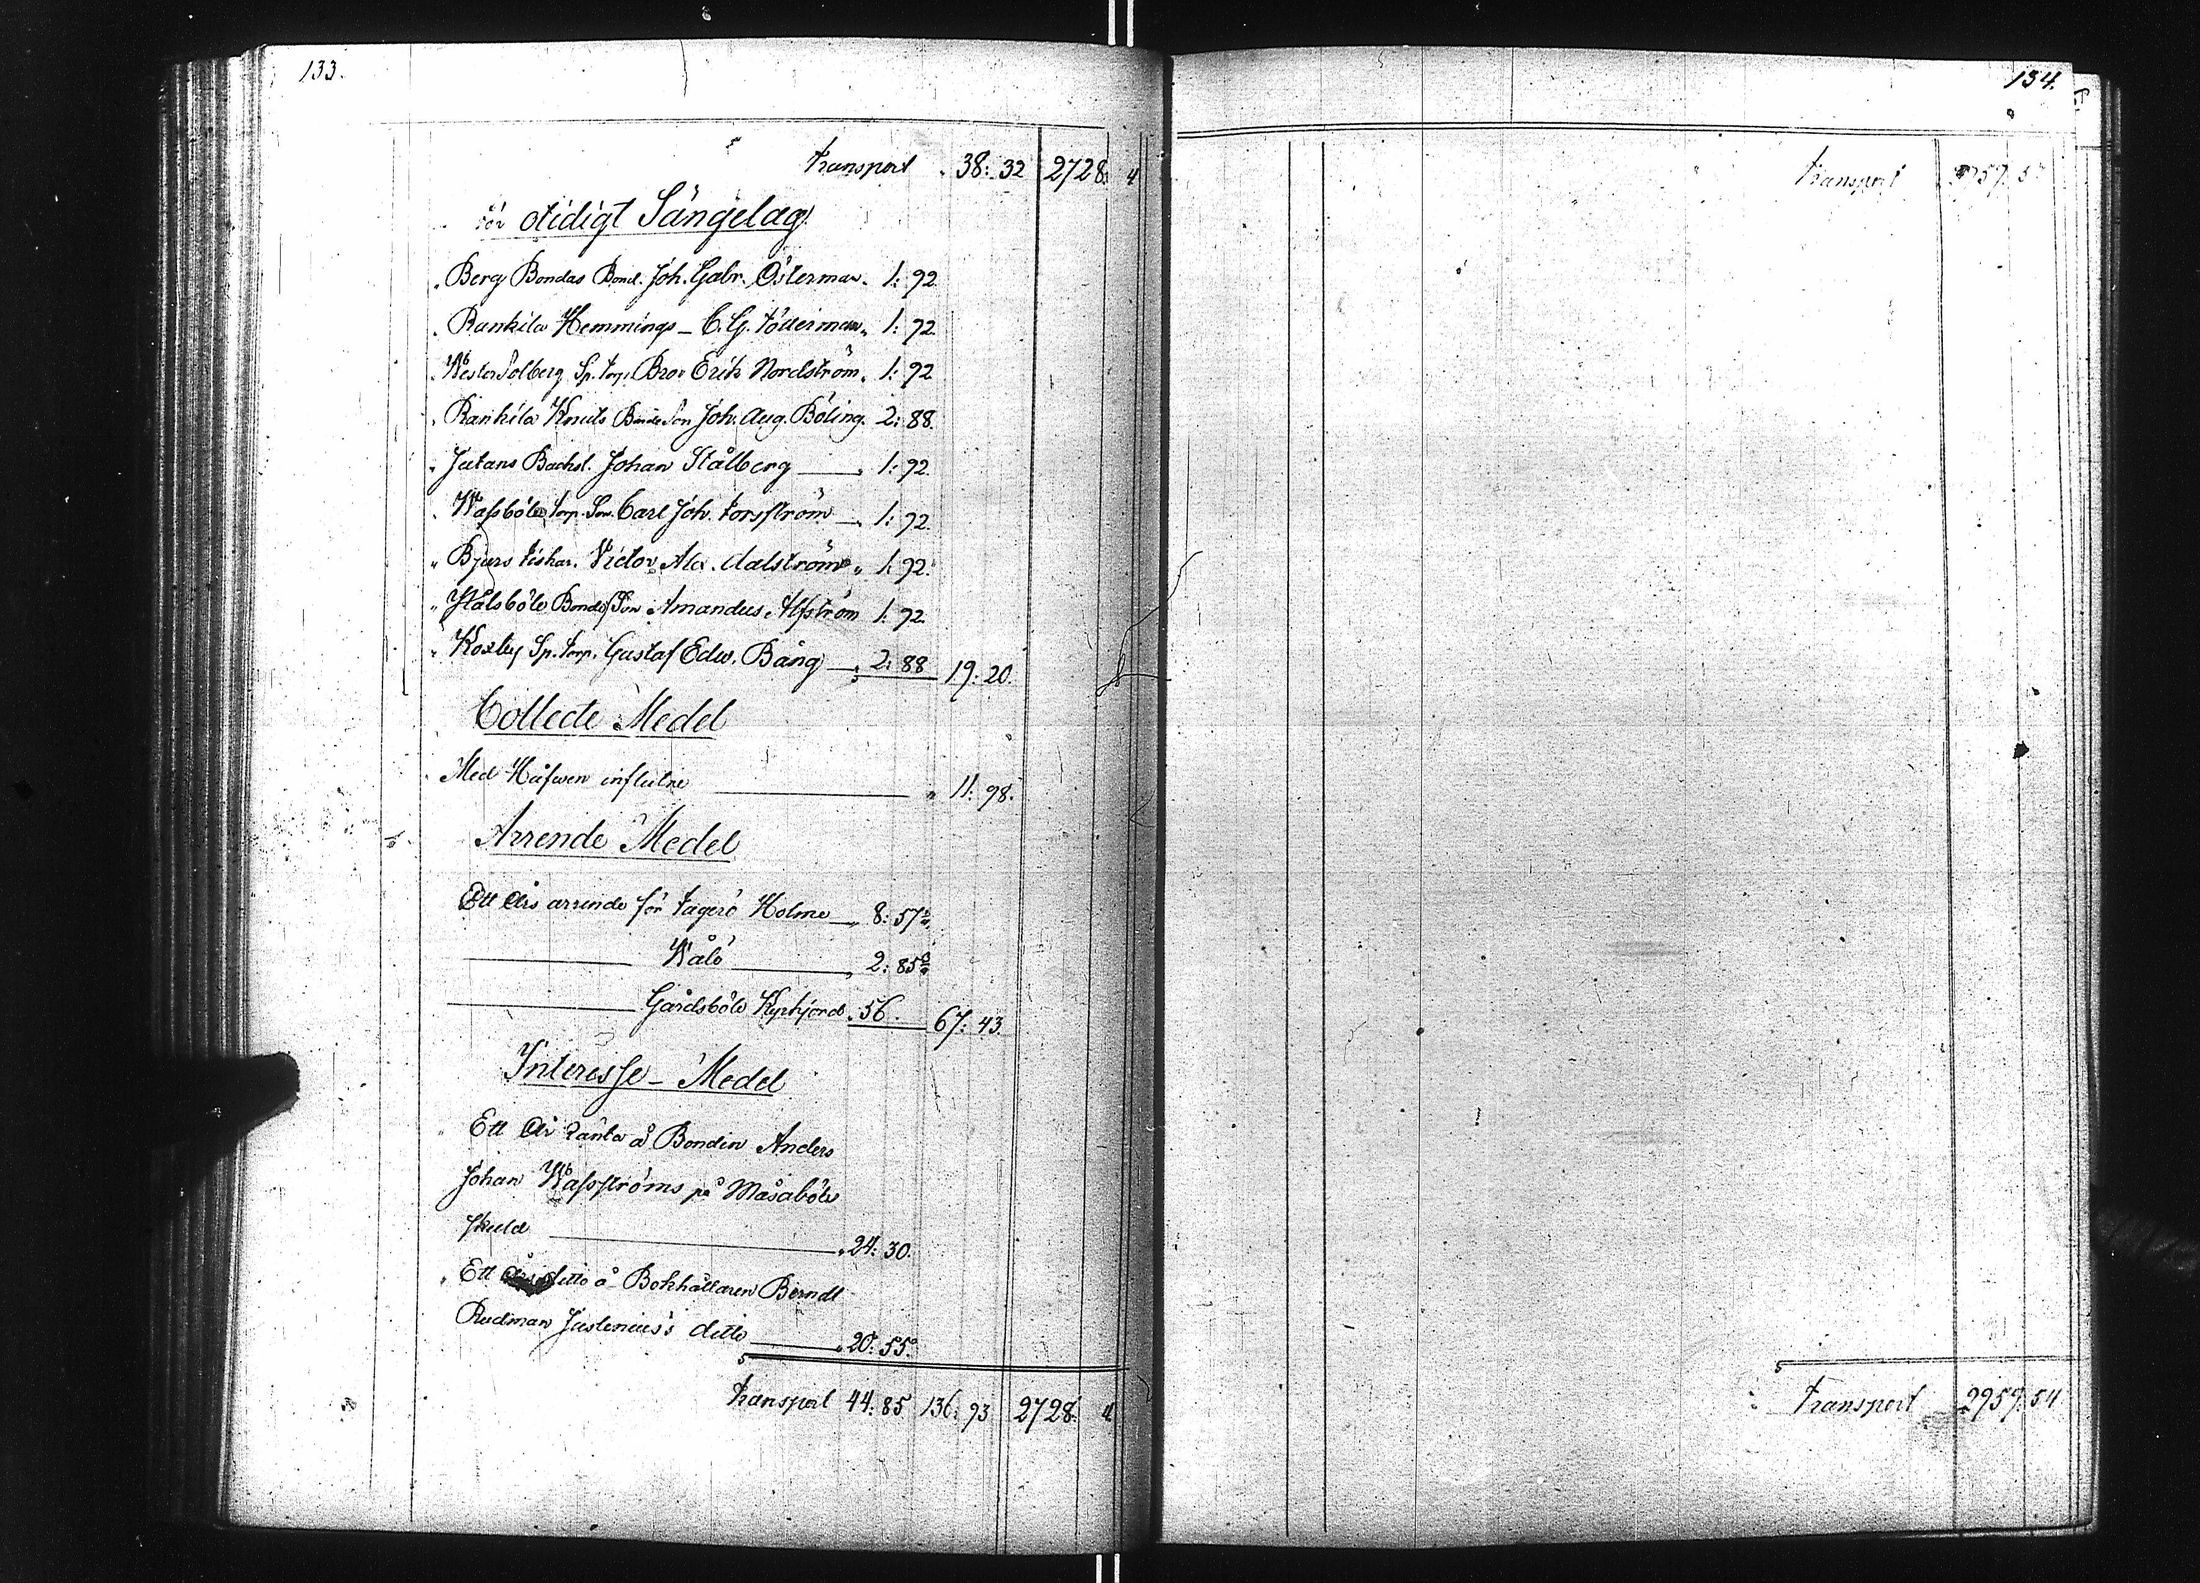 133.
Transport 38:32 2728: 4
för otidigt Sängelag.
" Berg Bondas Bond. Joh. Gabr. Österman " 1:92
" Rankila Hemmings – C. G. Söderman " 1:92.
" Wester Solberg Sp. torp. Bror Erik Nordström " 1:92
" Rankila Knuts Bonde Son Joh. Aug. Böling " 2:88.
" Jutans Bachst. Johan Stålberg " 1:92.
" Wassböle torp. Son Carl Joh. Forsström " 1:92.
" Bjurs Fiskar. Victor Alex. Dalström " 1:92.
" Stålsböle Bonde Son Amandus Alfström 1:92.
" Koxby Sp. torp. Gustaf Edw. Bång " 2:88 19:20.
Collecte Medel
Med Håfwen influtne " 11:98.
Arrende Medel
Ett Års arrende för Fagerö Holme " 8:57
Wålö " 2:85
Gårdsböle Kyrkjord " 56. 67:43.
Interesse – Medel
Ett Års Ränta å Bonden Anders
Johan Wassströms på Måsaböle
skuld " 24:30.
" Ett Års ditto å Bokhållaren Berndt
Rudman Justenius's ditto " 20:55.
Transport 44:85 136:93 2728: 4
134.
Transport
Transport 2959:54